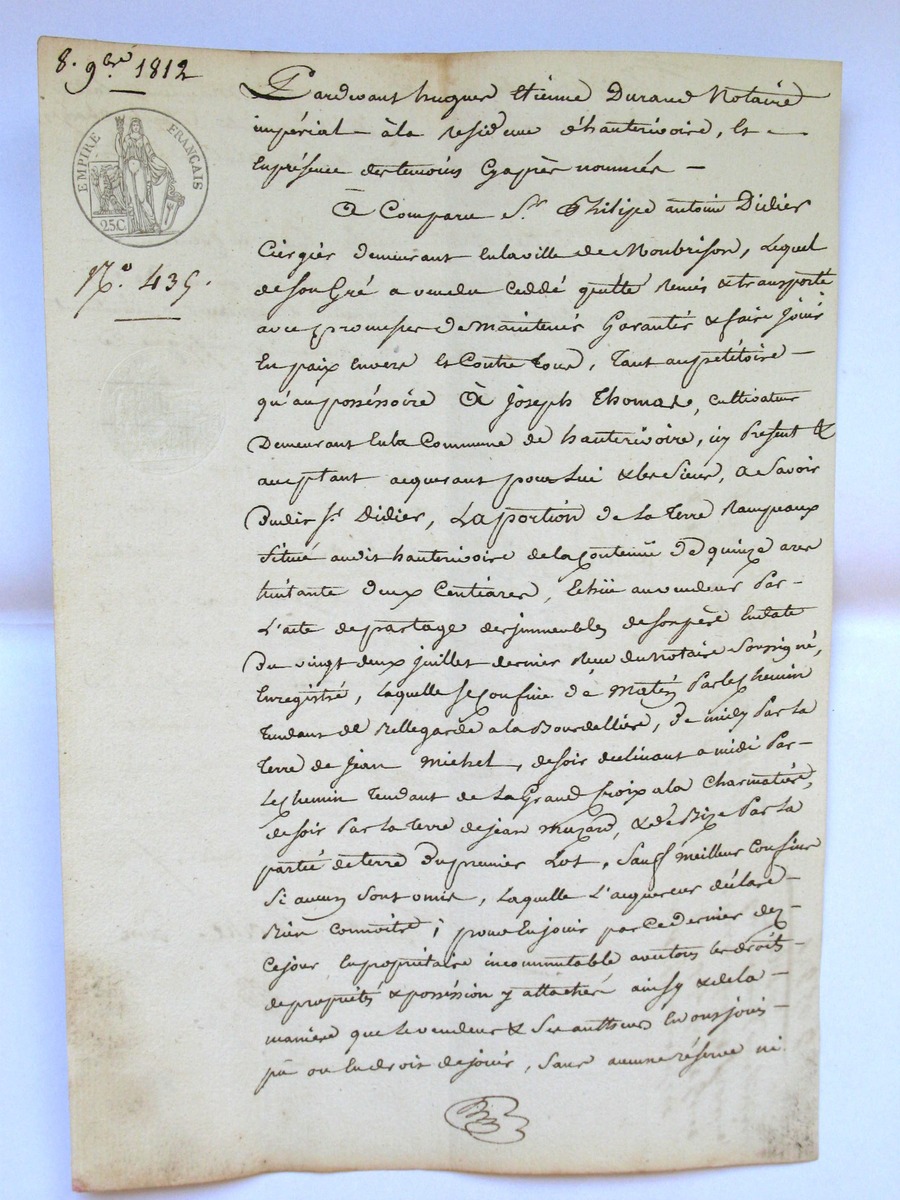 8. 9bre 1812
EMPIRE FRANÇAIS
25 C.
N.o 435.
Pardevant hugues Etienne Durand Notaire
impérial à la residence d'hauterivoire, Et
En présence des temoins Cy après nommés —
A Comparu Sr. Philipe antoine Didier
Ciergier demeurant En la ville de Monbrison, Lequel
de son Gré a vendu Ceddé quitté Remis & transporté
avec promesse de Maintenir Garantir & faire Jouir
En paix Envers et Contre tous, tant au petitoire —
qu'au posséssoire A Joseph Thomas, cultivateur
Demeurant En la Commune de hauterivoire, icy Présent &
acceptant acquerant pour Lui & les Siens, a Savoir
Dudit Sr Didier, La portion de La Terre Rampeaux
Situé audit hauterivoire de la Contenüe de quinze ares
trentante deux Centiares, Echüe au vendeur Par —
L'acte de partage des immeubles de son père En date
Du vingt deux juillet dernier Reçu du Notaire Soussigné,
Enregistré, Laquelle Se Confine de Matin Par le Chemin
Tendant de Bellegarde a la Bourdellière, de midy Par La
Terre de Jean Michel, de soir declinant a midi Par —
Le Chemin Tendant de La Grand Croix a la Charmatière,
de soir Par La Terre de jean Muzard, & de Bize Par La
partie de terre du premier Lot, Sauf meilleur Confins
Si aucuns Sont omis, Laquelle L'acquereur déclare —
Bien Connoitre; pour En jouir par Ce dernier dez —
Ce jour En propriétaire incommutable avec tous les droits —
de propriété & posséssion y attachés ainsy & de la —
manière que Le vendeur & Ses autheurs En ont joui —
pû ou En droit de jouir, Sans aucune réserve ni